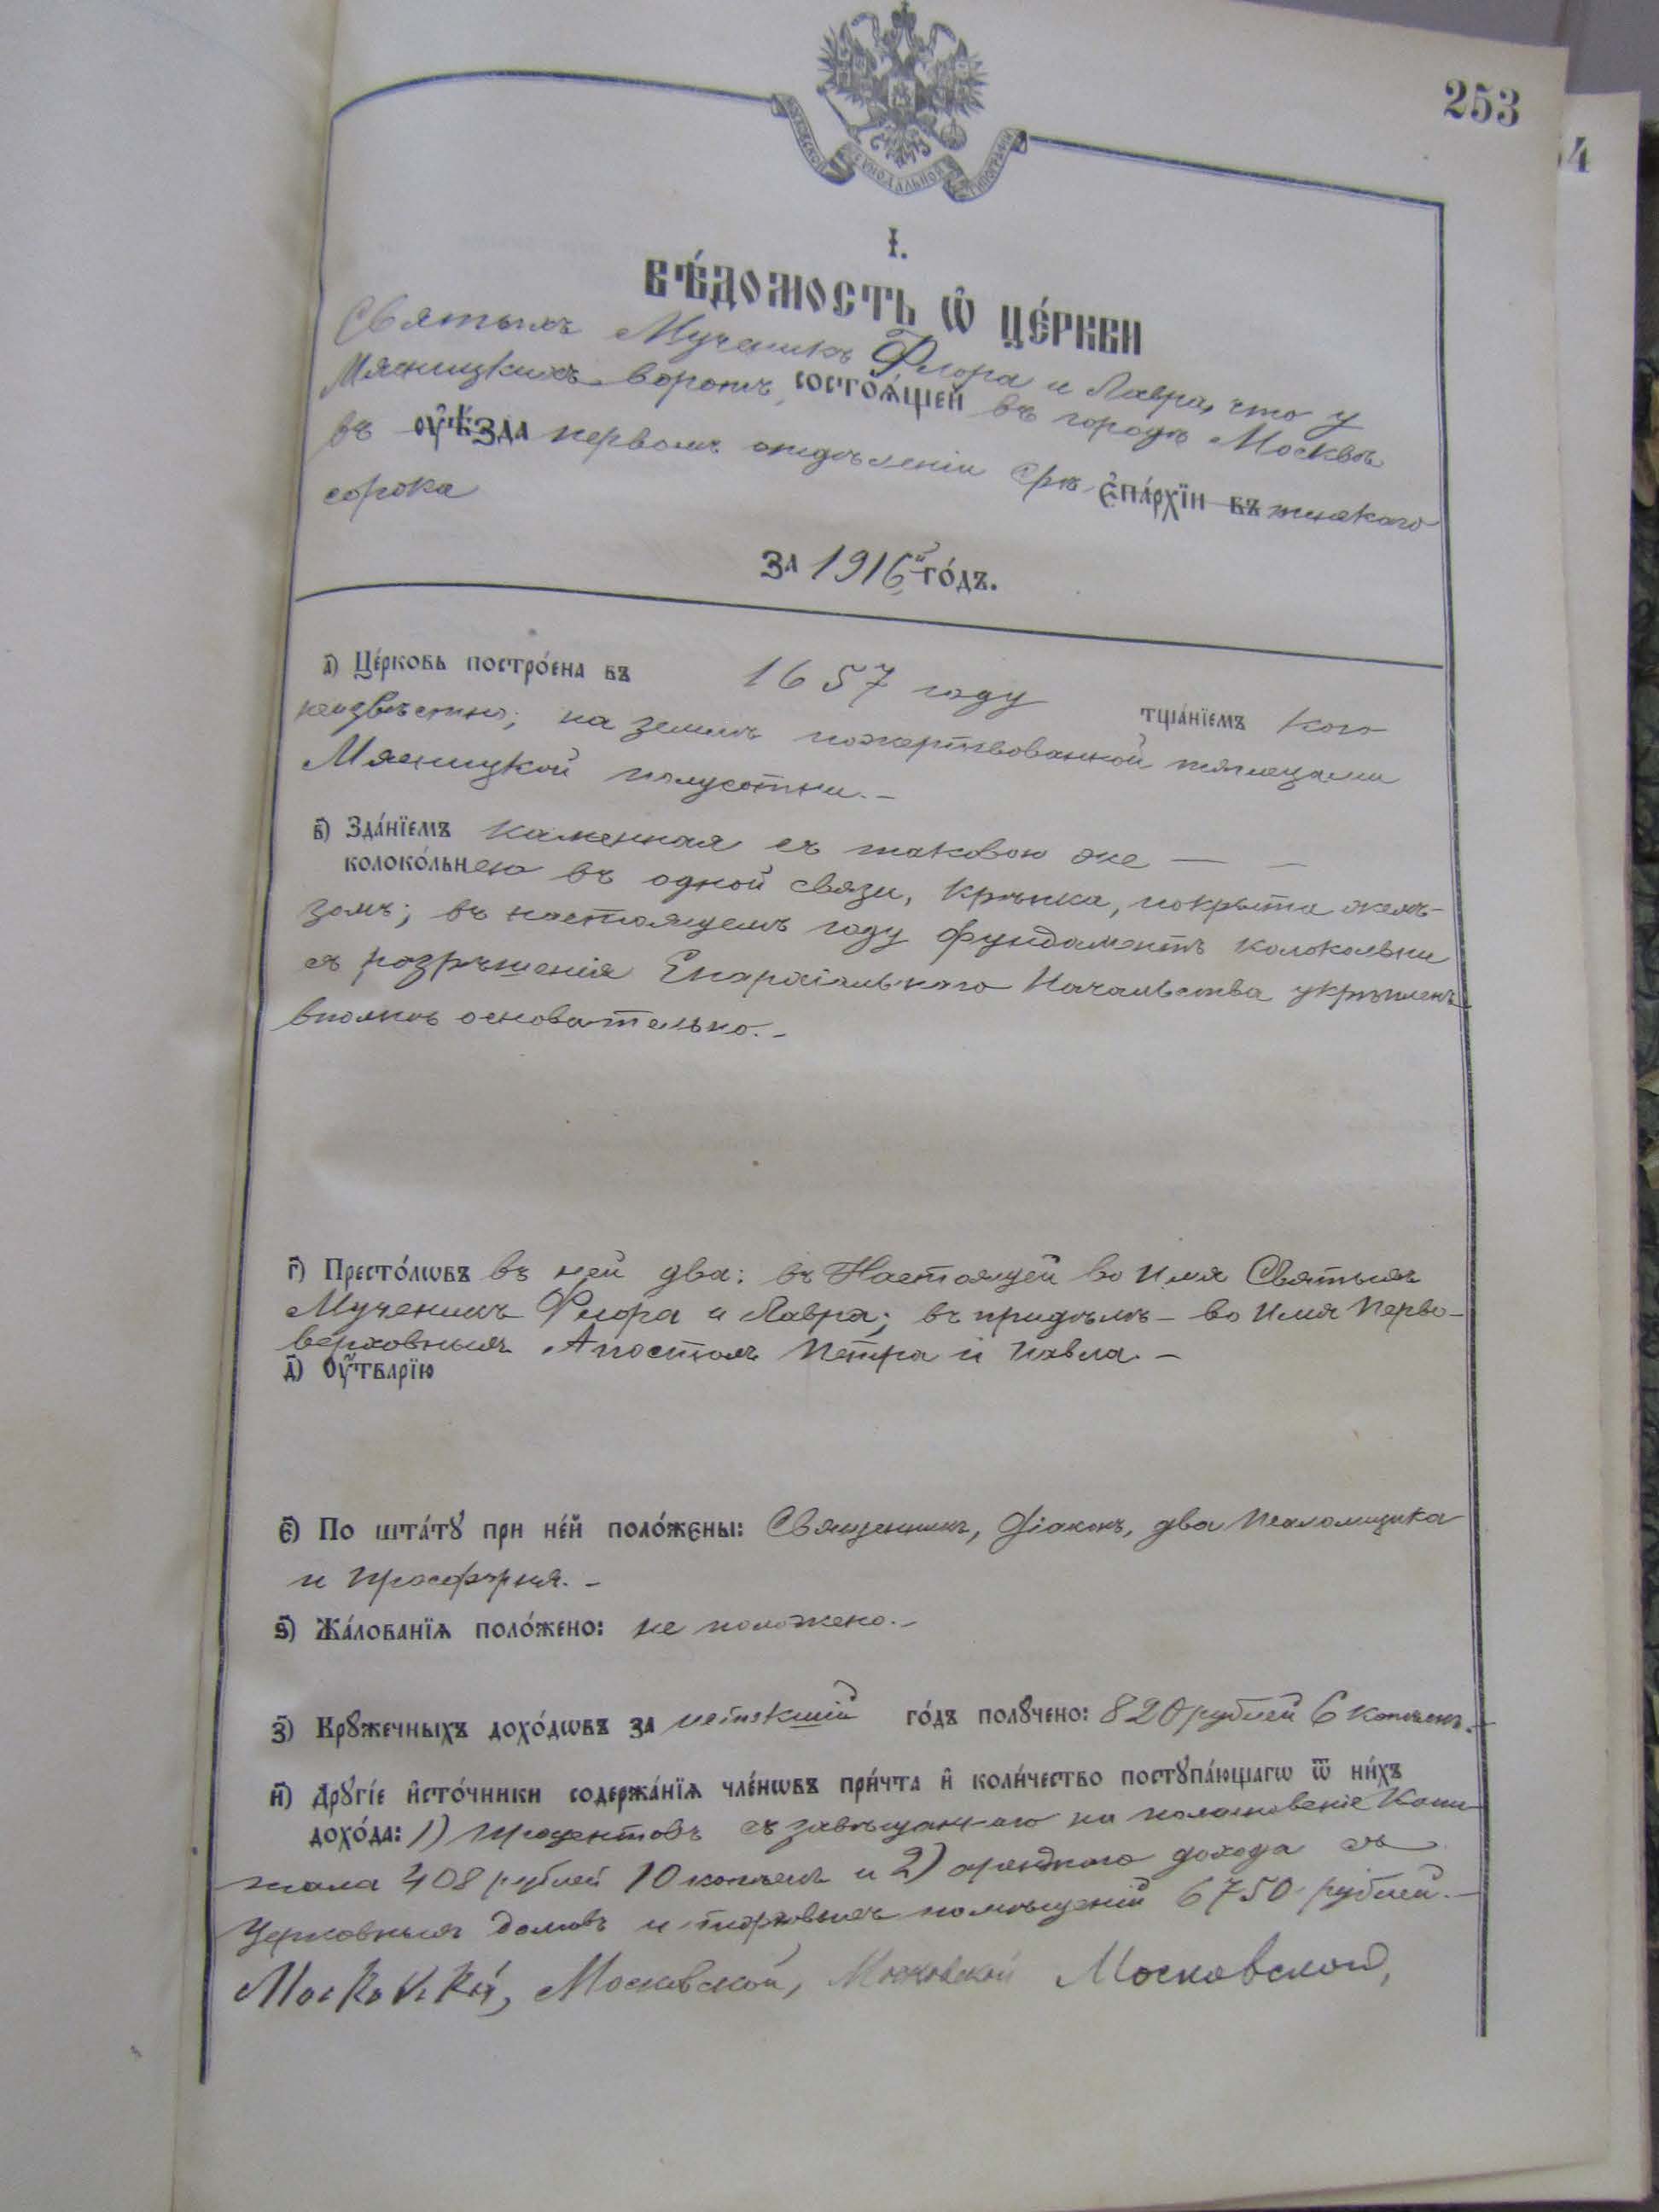 253
54
МОСКОВСКОЙ СѴНОДАЛЬНОЙ ТИПОГРАФІИ
І.
ВѢ́ДОМОСТЬ Ѡ҆ ЦЕ́РКВИ
Святыхъ Мученикъ Флора и Лавра, что у
Мясницкихъ воротъ, состоѧ́щей въ городѣ Москвѣ
въ ᲂу҆ѣ́зда первомъ отдѣленіи Срѣ є҆па́рхїи въ тенскаго
сорока
За 1916й го́дъ.
а҃) Це́рковь постро́ена въ 1657 году тща́нїемъ кого
неизвѣстно; на землѣ пожертвованной тяглецами
Мясницкой полусотни. –
в҃) Зда́нїемъ каменная съ таковою же — –
колоко́льнею въ одной связи, крѣпка, покрыта желѣ-
зомъ; въ настоящемъ году фундаментъ колокольни
съ разрѣшенія Епархіальнаго Начальства укрѣпленъ
вполнѣ основательно. –
г҃) Престо́лѡвъ въ ней два: въ Настоящей во имя Святыхъ
Мученикъ Флора и Лавра; въ придѣлѣ – во имя Перво-
верховныхъ Апостолъ Петра и Павла. –
д҃) Оу҆́тварїю
є҃) По шта́тꙋ при не́й поло́жены: Священникъ, Діаконъ, два Псаломщика
и Просфорня. –
ѕ҃) Жа́лованїѧ поло́жено: не положено. –
з҃) Крꙋжечныхъ дохо́дѡвъ за истекшій го́дъ полꙋчено: 820 рублей 6 копѣекъ. –
и҃) Дрꙋгі́е и҆сто́чники содержа́нїѧ чле́нѡвъ при́чта и҆ коли́чество постꙋпа́ющагѡ ѿ ни́хъ
дохо́да: 1) процентовъ съ завѣщаннаго на поминовеніе капи-
тала 408 рублей 10 копѣекъ и 2) аренднаго дохода съ
церковныхъ домовъ и торговыхъ помѣщеній 6750 рублей. –
Московской, Московской, Московской Московской,